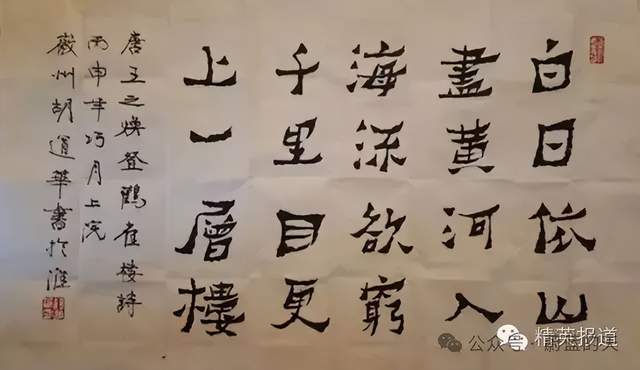 白日依山
盡黃河入
海流欲窮
千里目更
上一層樓
唐王之煥登鸛雀樓詩
丙申年巧月上浣
徽州胡道華書於淮
公众号
精英报道